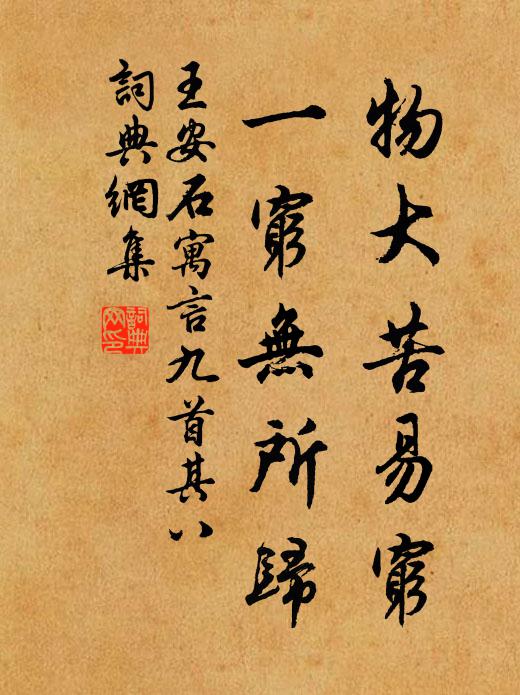 物大苦易窮
一窮無所歸
王安石寓言九首其八
詞典網集
詞典網印